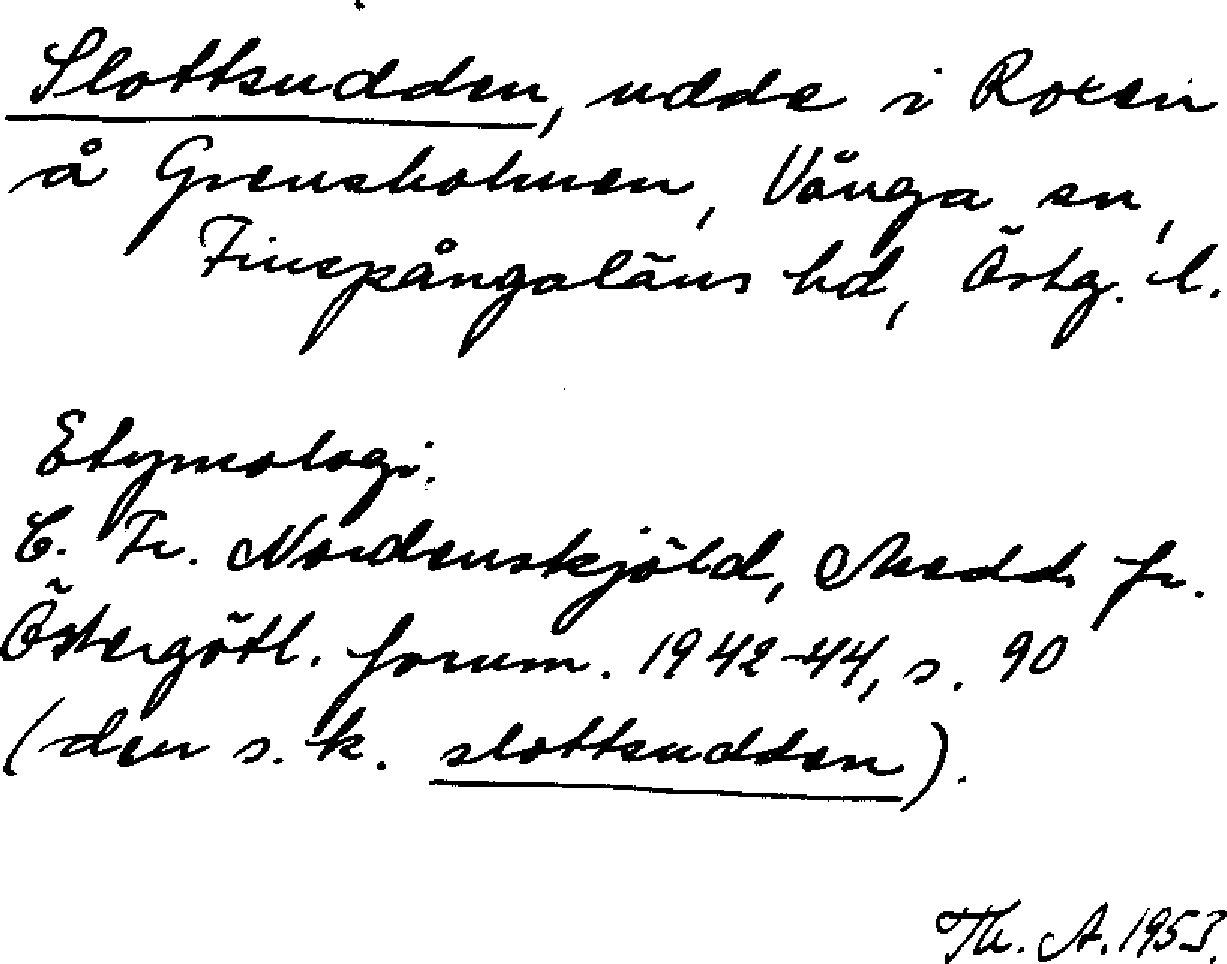 Slottsudden, udde i Roxen
å Grensholmen, Vånga sn,
Finspångaläns hd, Östg. l.
Etymologi.
C. Fr. Nordenskjöld, Medd. fr.
Östergötl. fornm. 1942-44, s. 90
(den s. k. slottsudden).
Th. A. 1953.